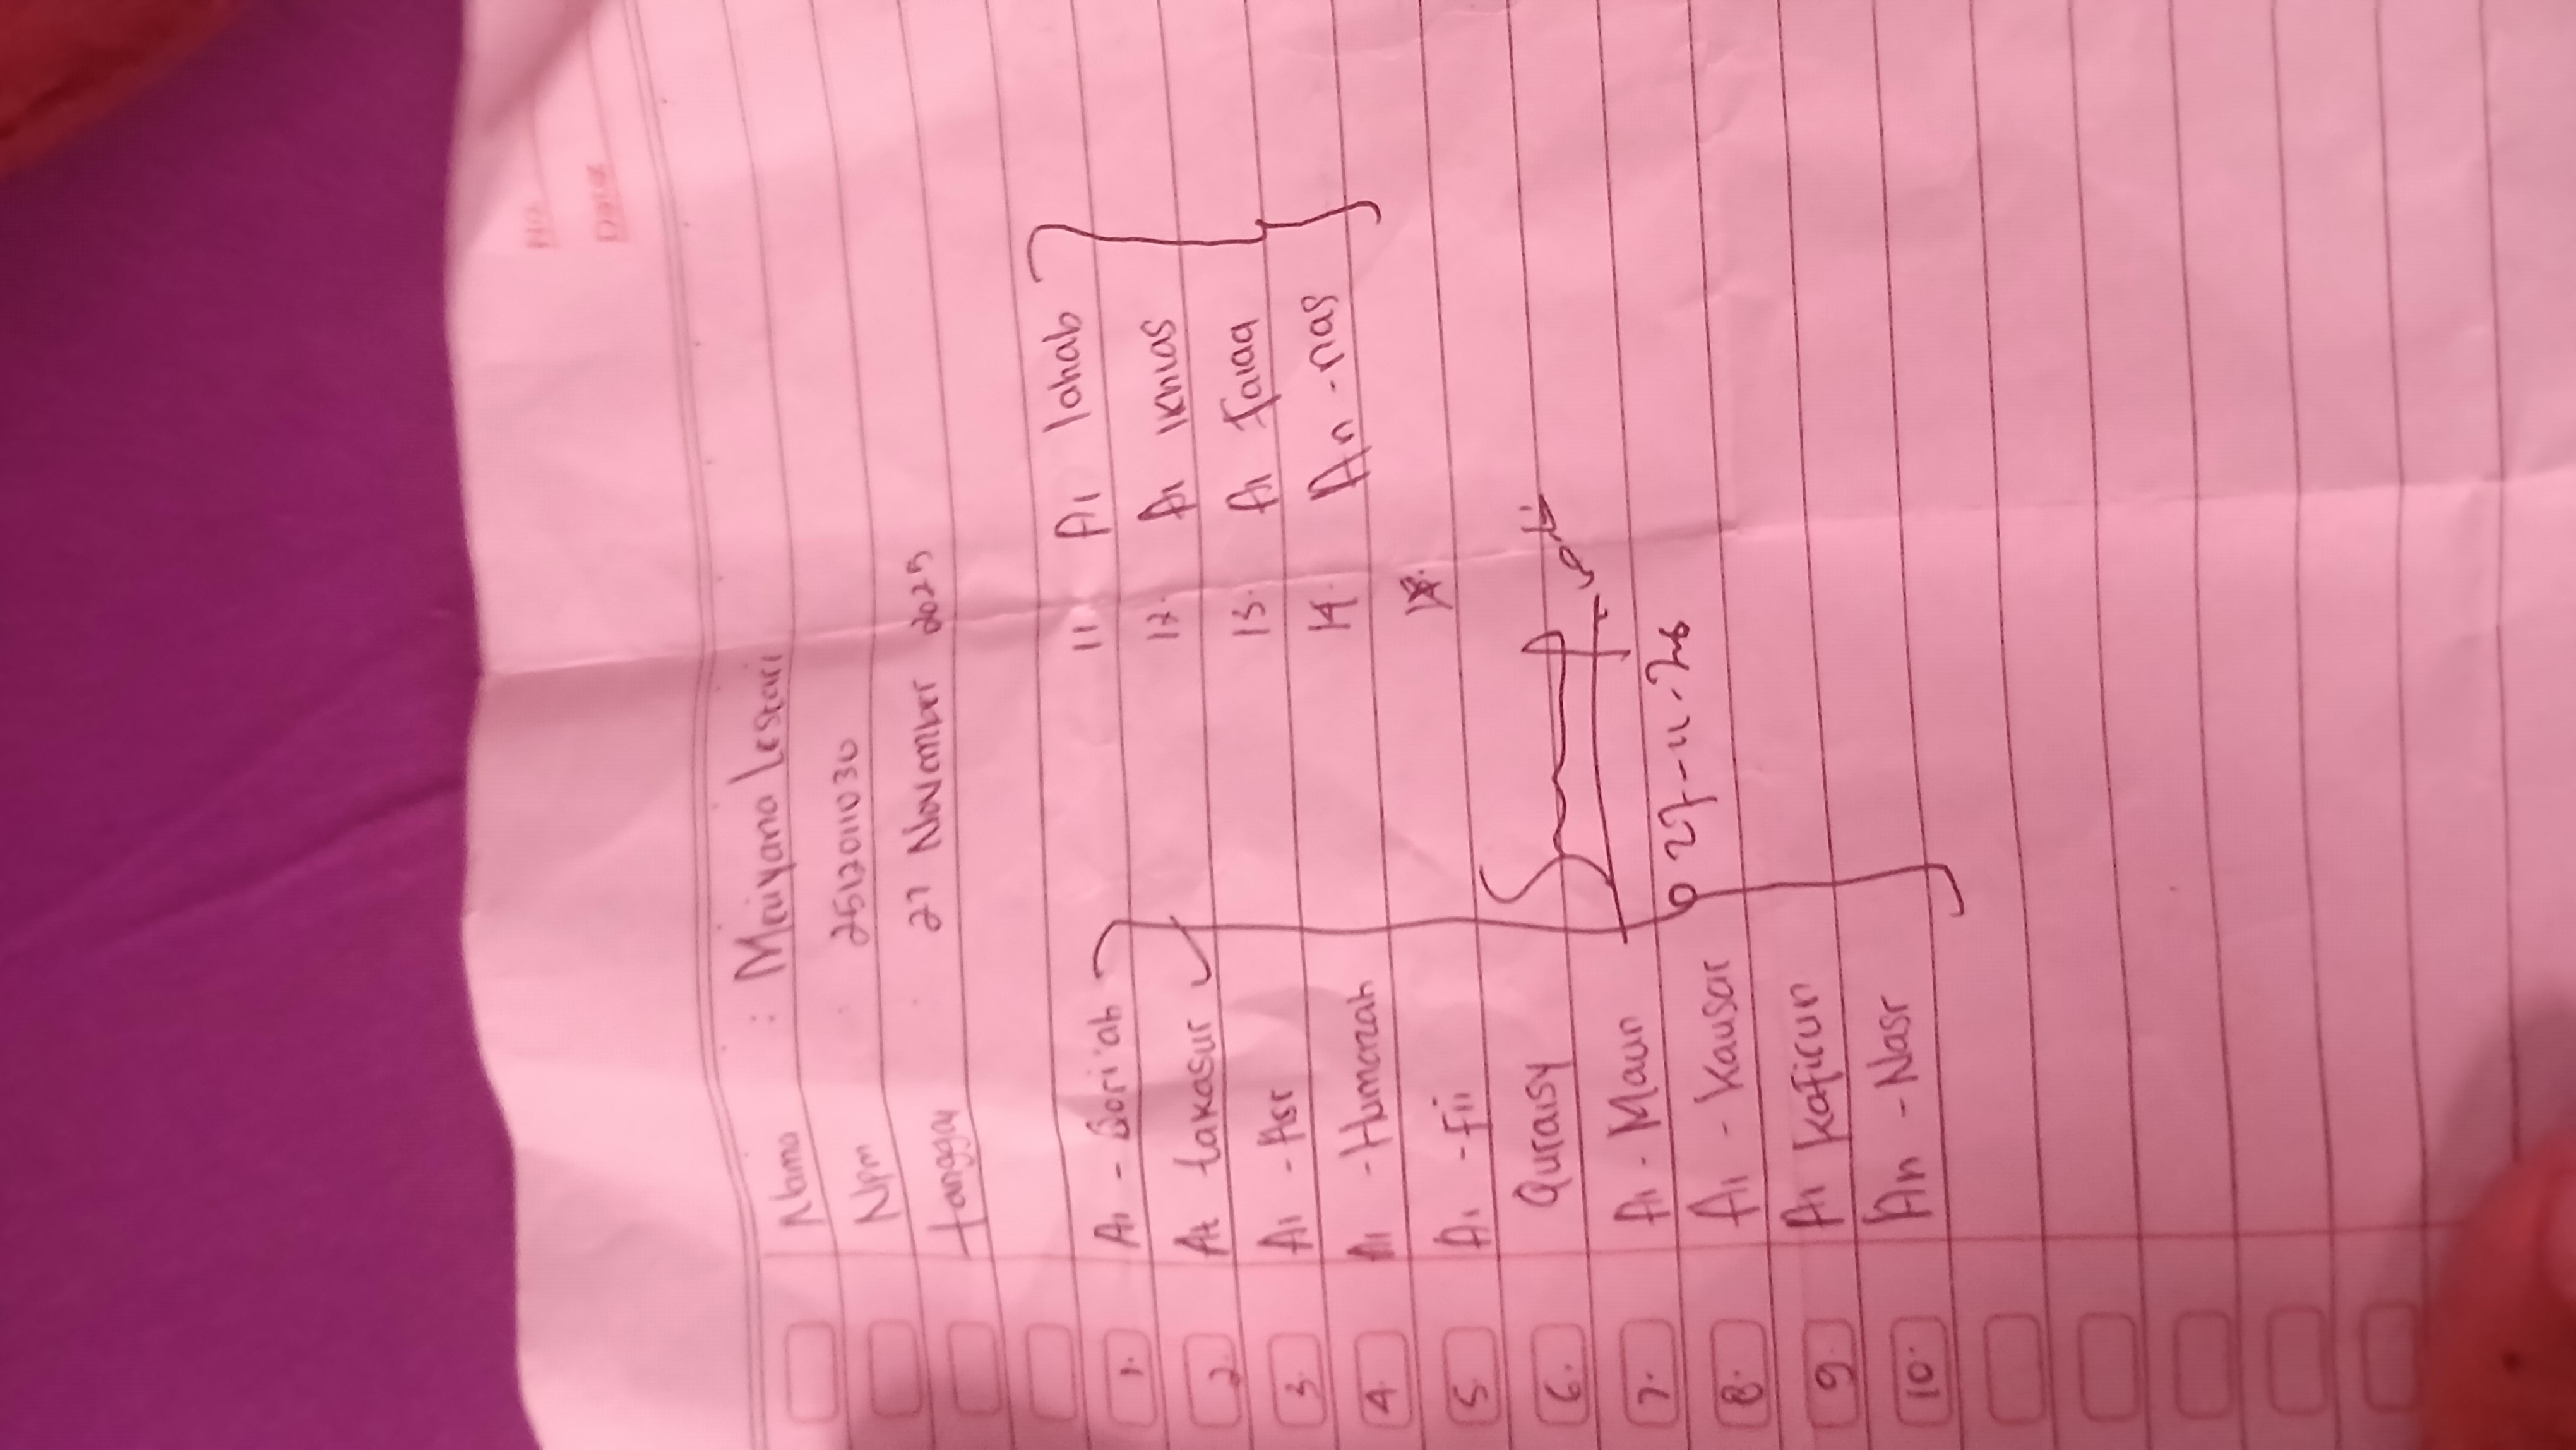 No
Date
Nama : Meiyana Lestari
Npm : 2512011030
tanggal : 27 November 2025
1. Al - Qori'ah
2. At takasur
3. Al - Asr
4. Al - Humazah
5. Al - Fil
6. Quraisy
7. Al - Maun
8. Al - Kausar
9. Al Kafirun
10. An - Nasr
11 Al lahab
12. Al Ikhlas
13. Al Falaq
14. An - nas
27-11-